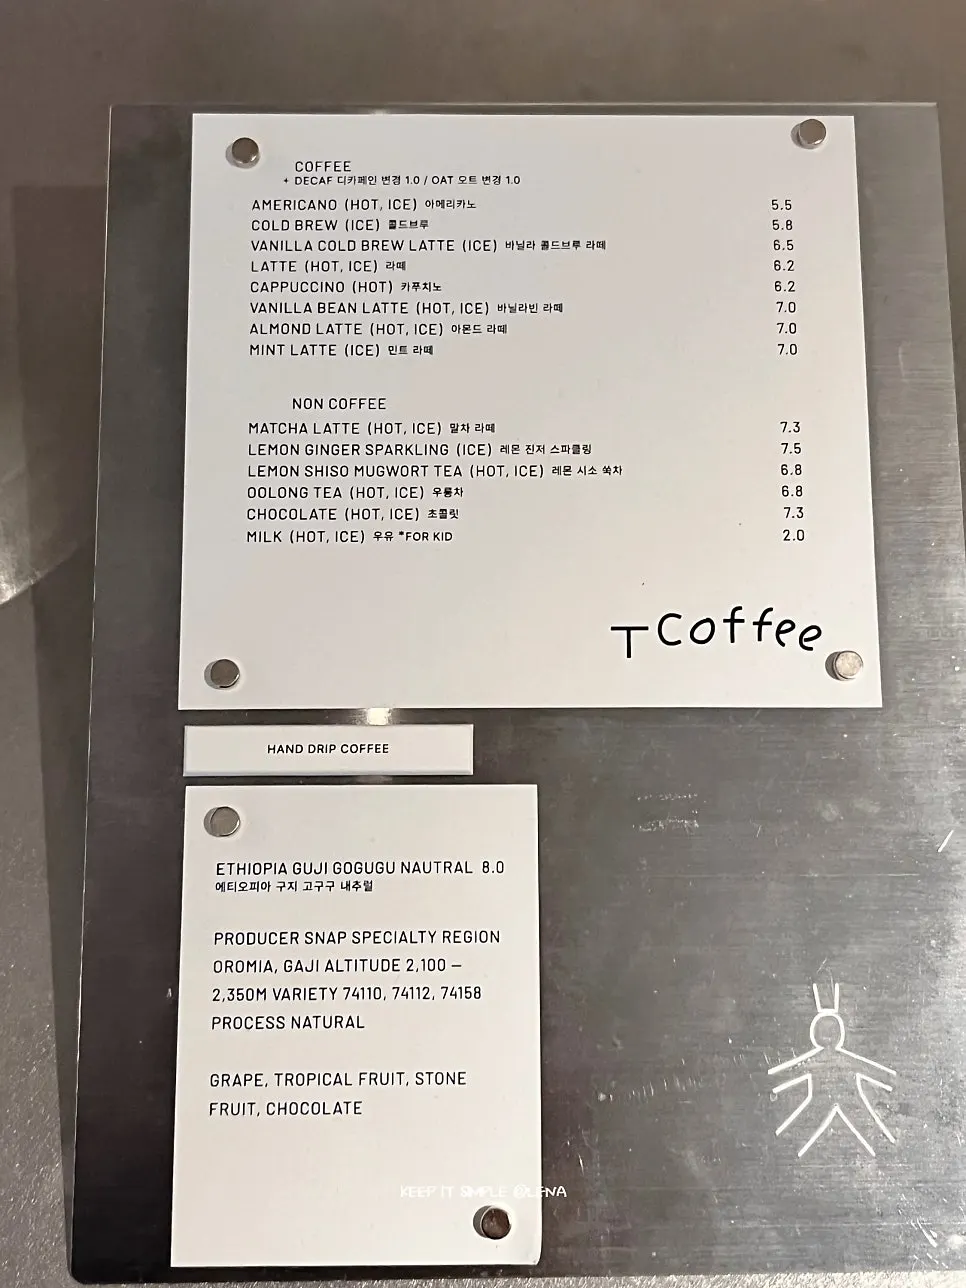 COFFEE
+ DECAF 디카페인 변경 1.0 / OAT 오트 변경 1.0
AMERICANO (HOT, ICE) 아메리카노 5.5
COLD BREW (ICE) 콜드브루 5.8
VANILLA COLD BREW LATTE (ICE) 바닐라 콜드브루 라떼 6.5
LATTE (HOT, ICE) 라떼 6.2
CAPPUCCINO (HOT) 카푸치노 6.2
VANILLA BEAN LATTE (HOT, ICE) 바닐라빈 라떼 7.0
ALMOND LATTE (HOT, ICE) 아몬드 라떼 7.0
MINT LATTE (ICE) 민트 라떼 7.0
NON COFFEE
MATCHA LATTE (HOT, ICE) 말차 라떼 7.3
LEMON GINGER SPARKLING (ICE) 레몬 진저 스파클링 7.5
LEMON SHISO MUGWORT TEA (HOT, ICE) 레몬 시소 쑥차 6.8
OOLONG TEA (HOT, ICE) 우롱차 6.8
CHOCOLATE (HOT, ICE) 초콜릿 7.3
MILK (HOT, ICE) 우유 *FOR KID 2.0
T Coffee
HAND DRIP COFFEE
ETHIOPIA GUJI GOGUGU NAUTRAL 8.0
에티오피아 구지 고구구 내추럴
PRODUCER SNAP SPECIALTY REGION
OROMIA, GAJI ALTITUDE 2,100 –
2,350M VARIETY 74110, 74112, 74158
PROCESS NATURAL
GRAPE, TROPICAL FRUIT, STONE
FRUIT, CHOCOLATE
KEEP IT SIMPLE @LENA